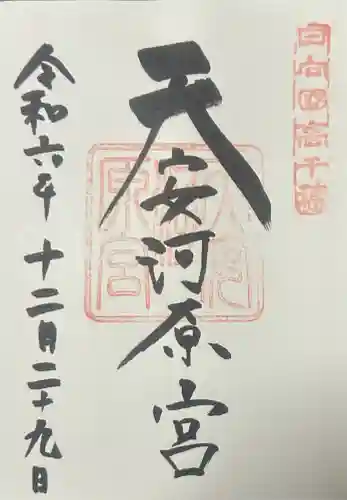 日向国高千穂
天安河原宮
令和六年十二月二十九日